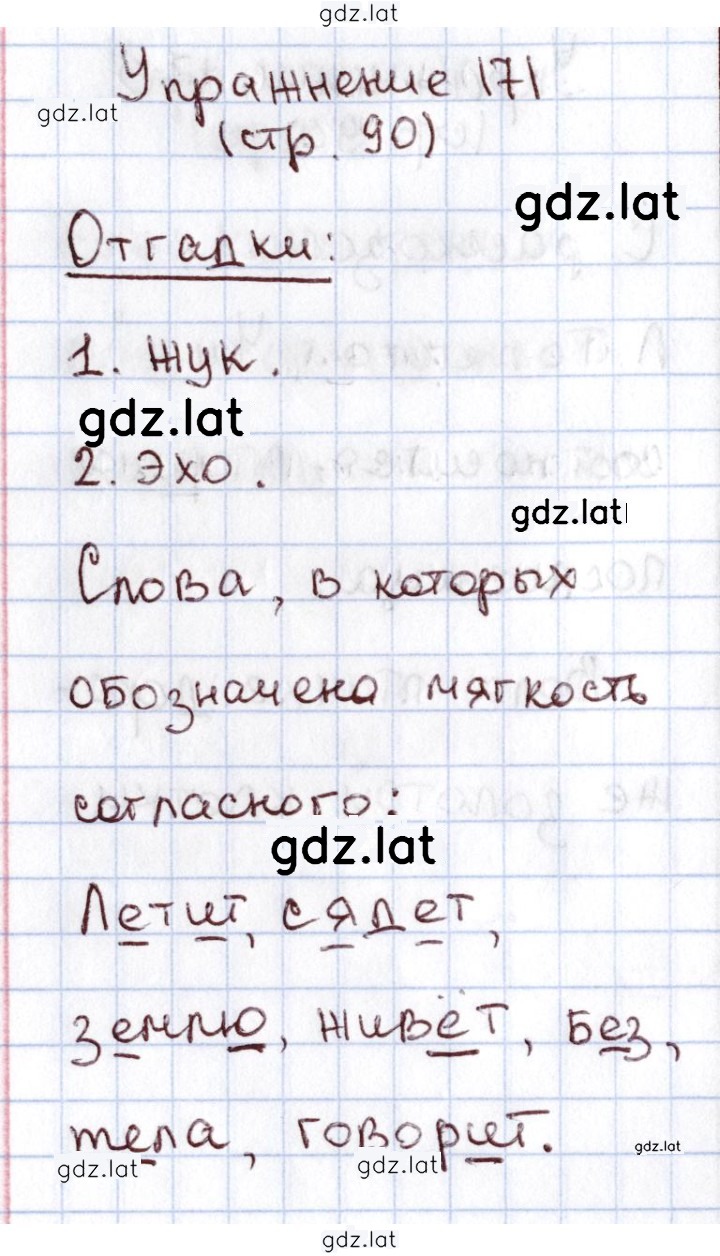 gdz.lat
Упражнение 171
gdz.lat
(стр. 90)
gdz.lat
Отгадки:
1. Жук.
gdz.lat
2. Эхо.
gdz.lat
Слова, в которых
обозначена мягкость
согласного:
gdz.lat
Летит, сядет,
землю, живёт, без,
тела, говорит.
gdz.lat
gdz.lat
gdz.lat
gdz.lat